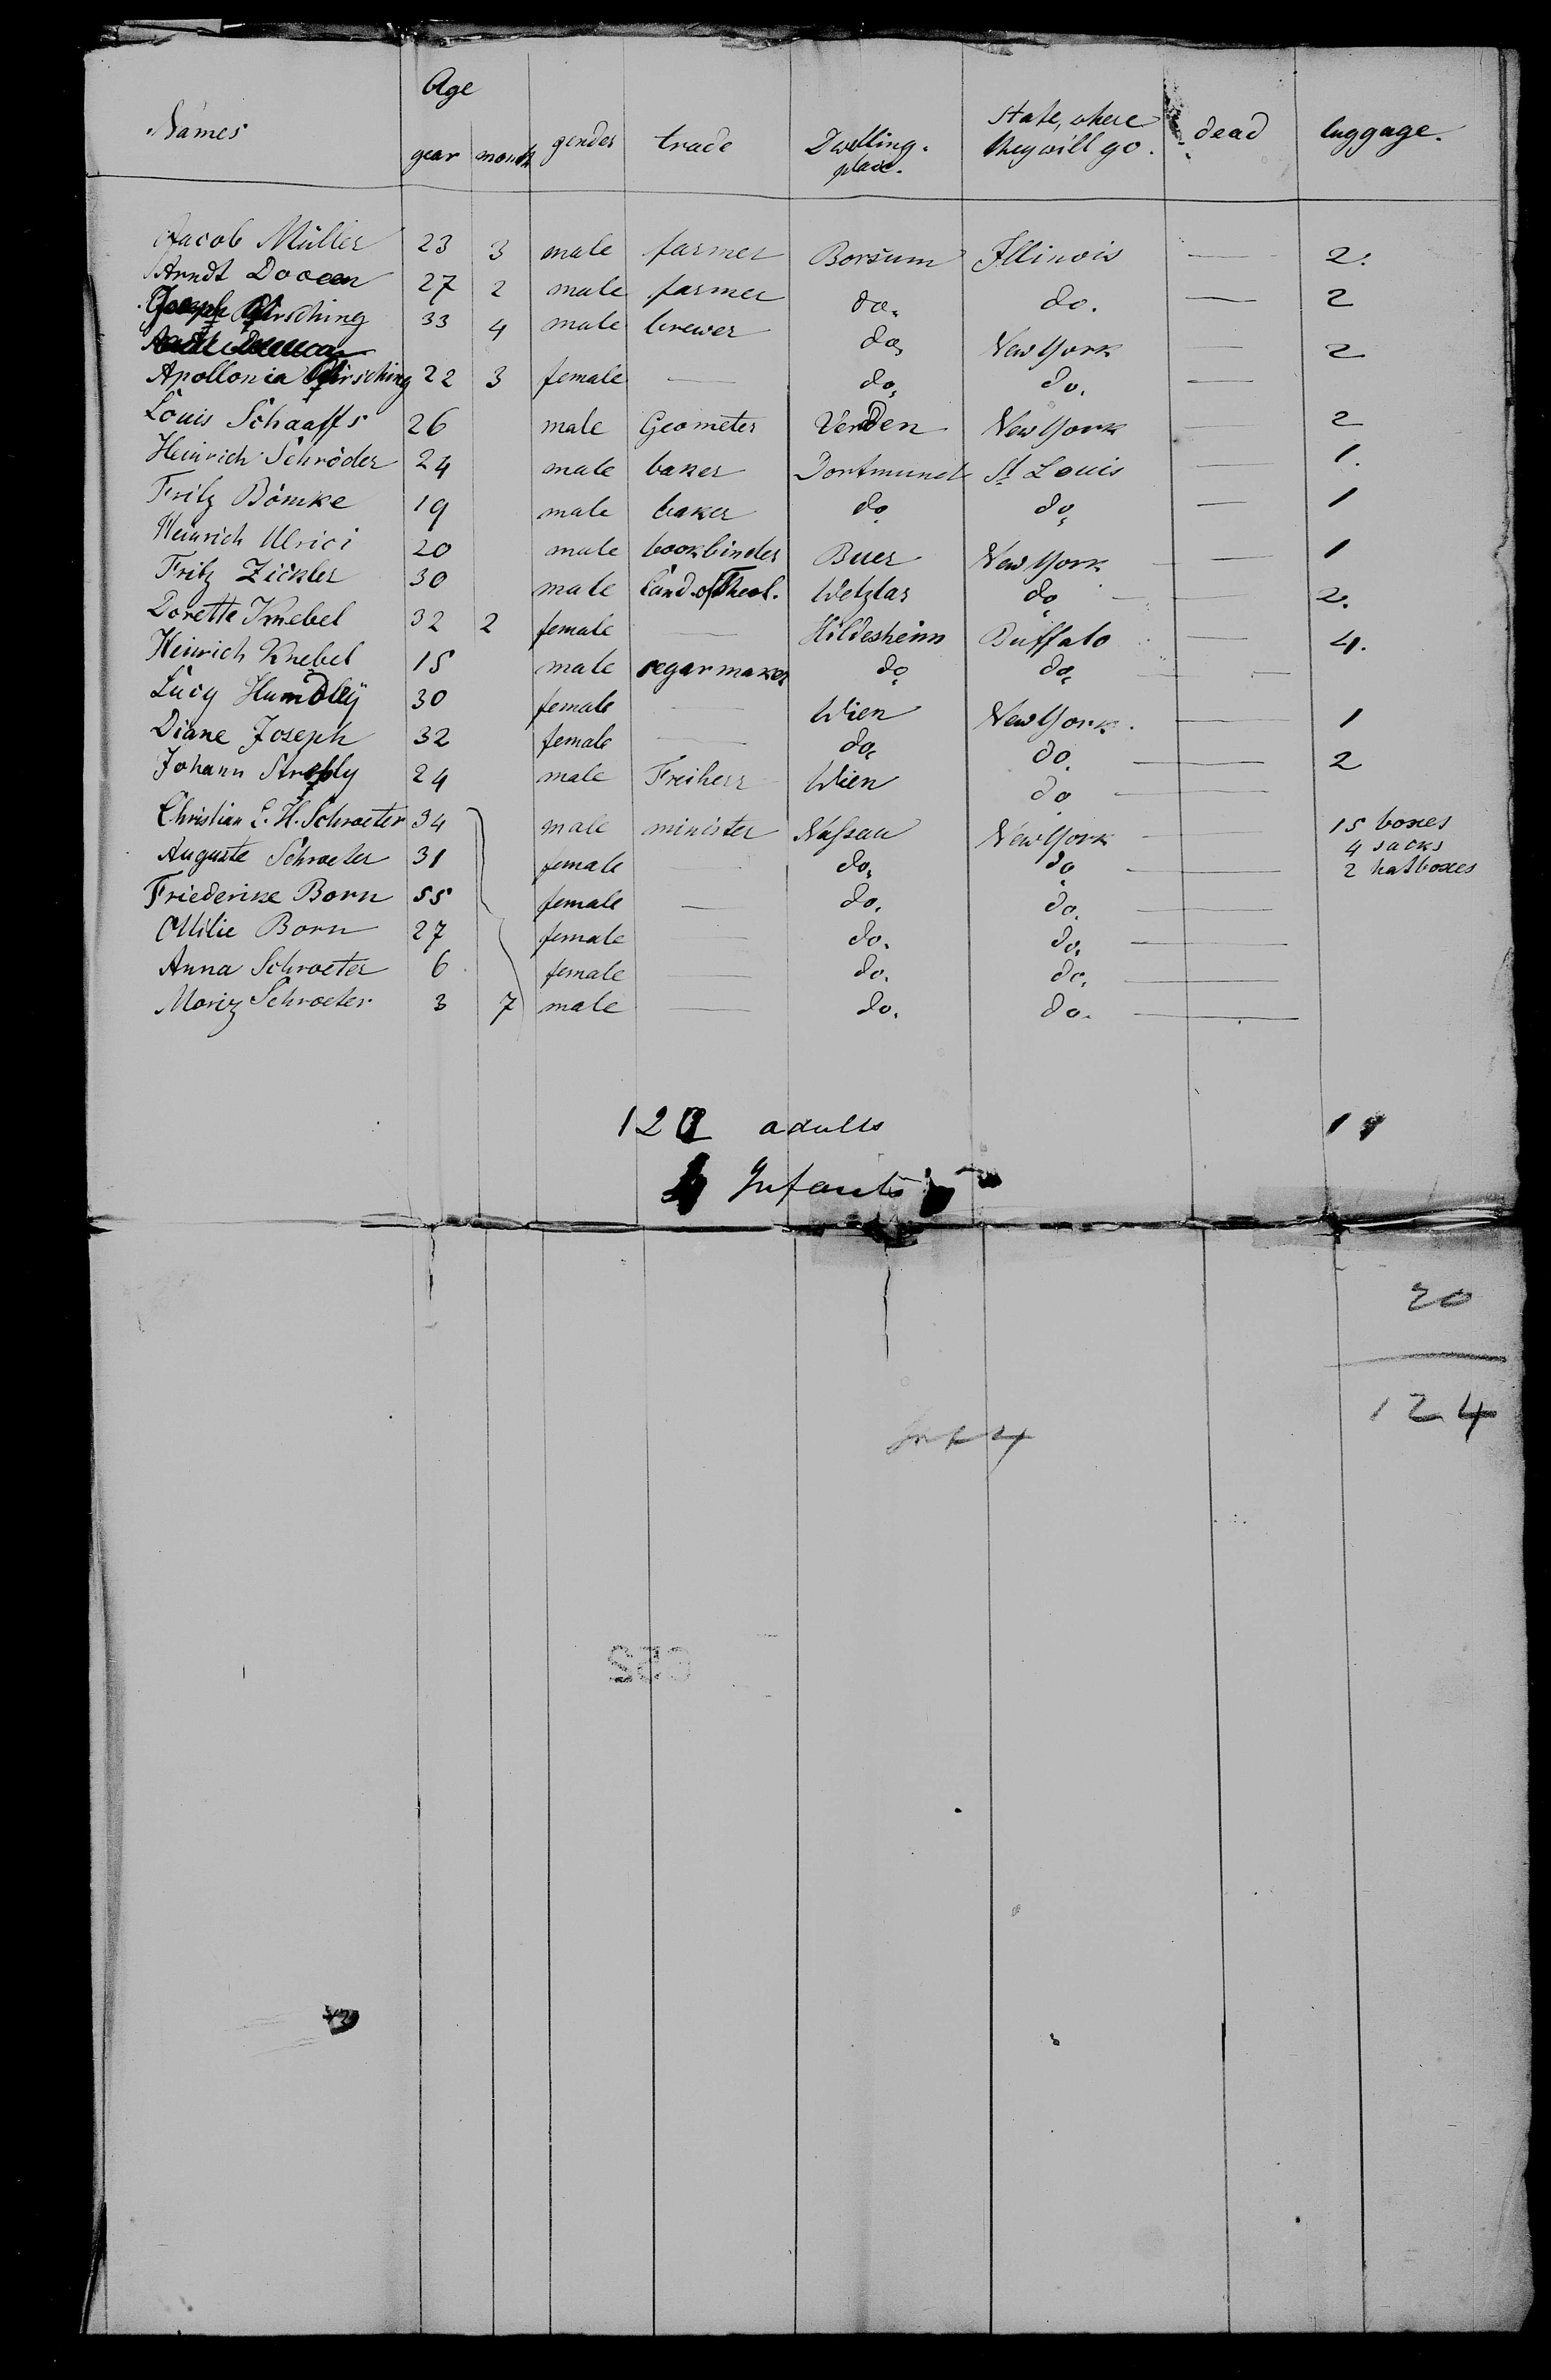 Names Age gender trade Dwelling- State, where dead luggage.
year month place. they will go.
Jacob Müller 23 3 male farmer Borsum Illinois — 2.
Arndt Doocen 27 2 male farmer do. do. — 2
Joseph 33 4 male brewer do. New York — 2
Apollonia 22 3 female — do. do. —
Louis Schaaffs 26 male Geometer Verden New York — 2
Heinrich Schröder 24 male baker Dortmund St Louis — 1.
Fritz Bömke 19 male baker do do. — 1
Heinrich Ulrici 20 male bookbinder Buer New York — 1
Fritz Zickler 30 male Cand. of Theol. Wetzlar do — 2.
Dorette Knebel 32 2 female — Hildesheim Buffalo 4.
Heinrich Knebel 15 male segarmaker do do. —
Lucy Humbley 30 female — Wien New York. — 1
Diane Joseph 32 female — do. do. — 2
Johann 24 male Freiherr Wien do —
Christian E. H. Schroeter 34 male minister Nassau New York — 15 boxes
4 sacks
Auguste Schroeter 31 female — do. do — 2 hatboxes
Friederike Born 55 female — do. do. —
Ottilie Born 27 female — do. do. —
Anna Schroeter 6 female — do. do. —
Moriz Schroeter 3 7 male — do. do. —
adults
Infants
20
124